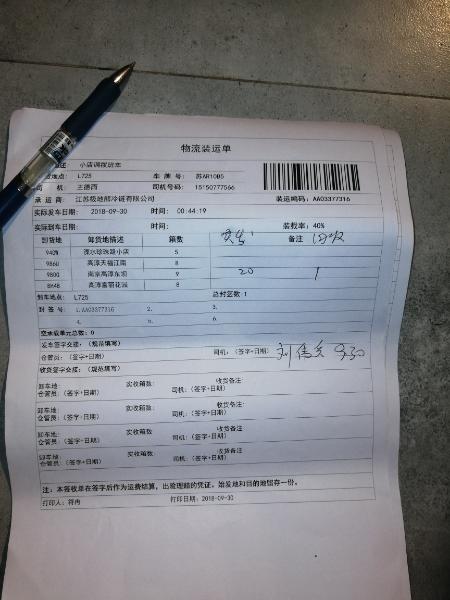 物流装运单
小店调拨班车
L725 车 牌 号: 苏AR10B5
司 机: 王德西 司机号码: 15150777566
承 运 商: 江苏极地熊冷链有限公司 装运唛码: AA03377316
实际发车日期: 2018-09-30 时间: 00:44:19
实际到车日期: 时间: 装载率: 40%
卸货地 卸货地描述 箱数 备注
942E 溧水珍珠路小店 5
986U 高淳天福江南 8
980Q 南京高淳东坝 9 20 1
8H4B 高淳富丽花园 8
卸车地点: L725 总封签数:1
封 签 号: 1.AA03377316 2. 3.
4. 5. 6.
空承载单元总数: 0
发车签字交接: (规范填写)
仓管员: (签字+日期) 司机: (签字+日期) 9.30
收货签字交接: (规范填写)
卸车地: 实收箱数: 收货备注:
仓管员: (签字+日期) 司机: (签字+日期)
卸车地: 实收箱数: 收货备注:
仓管员: (签字+日期) 司机: (签字+日期)
卸车地: 实收箱数: 收货备注:
仓管员: (签字+日期) 司机: (签字+日期)
卸车地: 实收箱数: 收货备注:
仓管员: (签字+日期) 司机: (签字+日期)
注: 本签收单在签字后作为运费结算, 出险理赔的凭证。始发地和目的地留存一份。
打印人: 符冉 打印日期: 2018-09-30